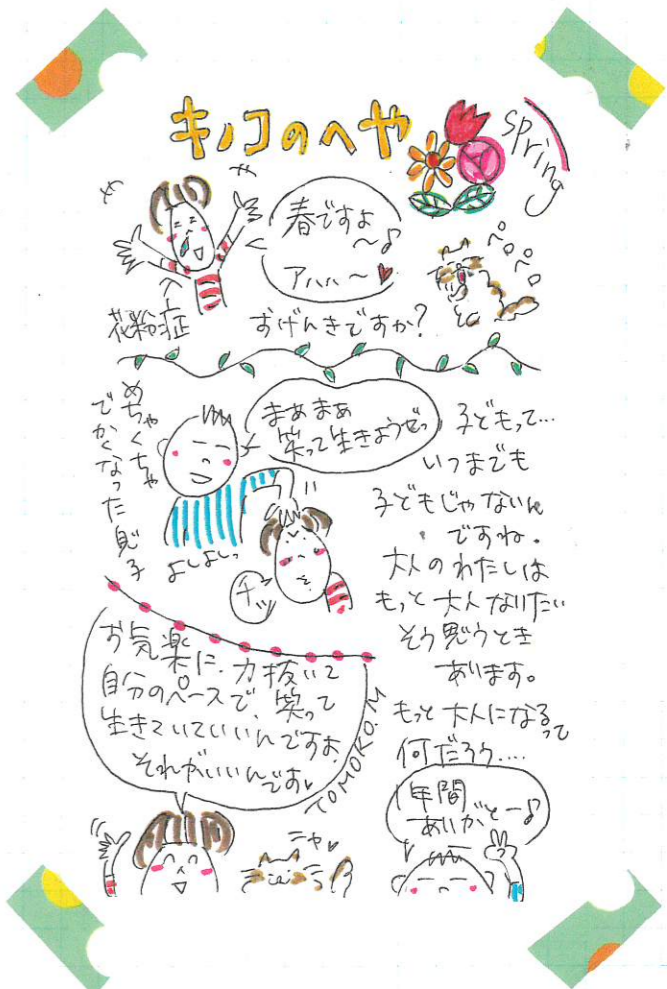 キノコのへや
spring
春ですよ
~♪
アハハ~♥
ペロペロ
花粉症
おげんきですか?
めちゃくちゃ
でかくなった息子
まあまあ
笑って生きようぜっ
よしよしっ
チッ
子どもって…
いつまでも
子どもじゃないん
ですね。
大人のわたしは
もっと大人なりたい
そう思うとき
あります。
もっと大人になるって
何だろう….
お気楽に、力抜いて
自分のペースで、笑って
生きていていいんですよ
それがいいんです♥
TOMOKO.M
1年間
ありがとー♪
ニャ♥